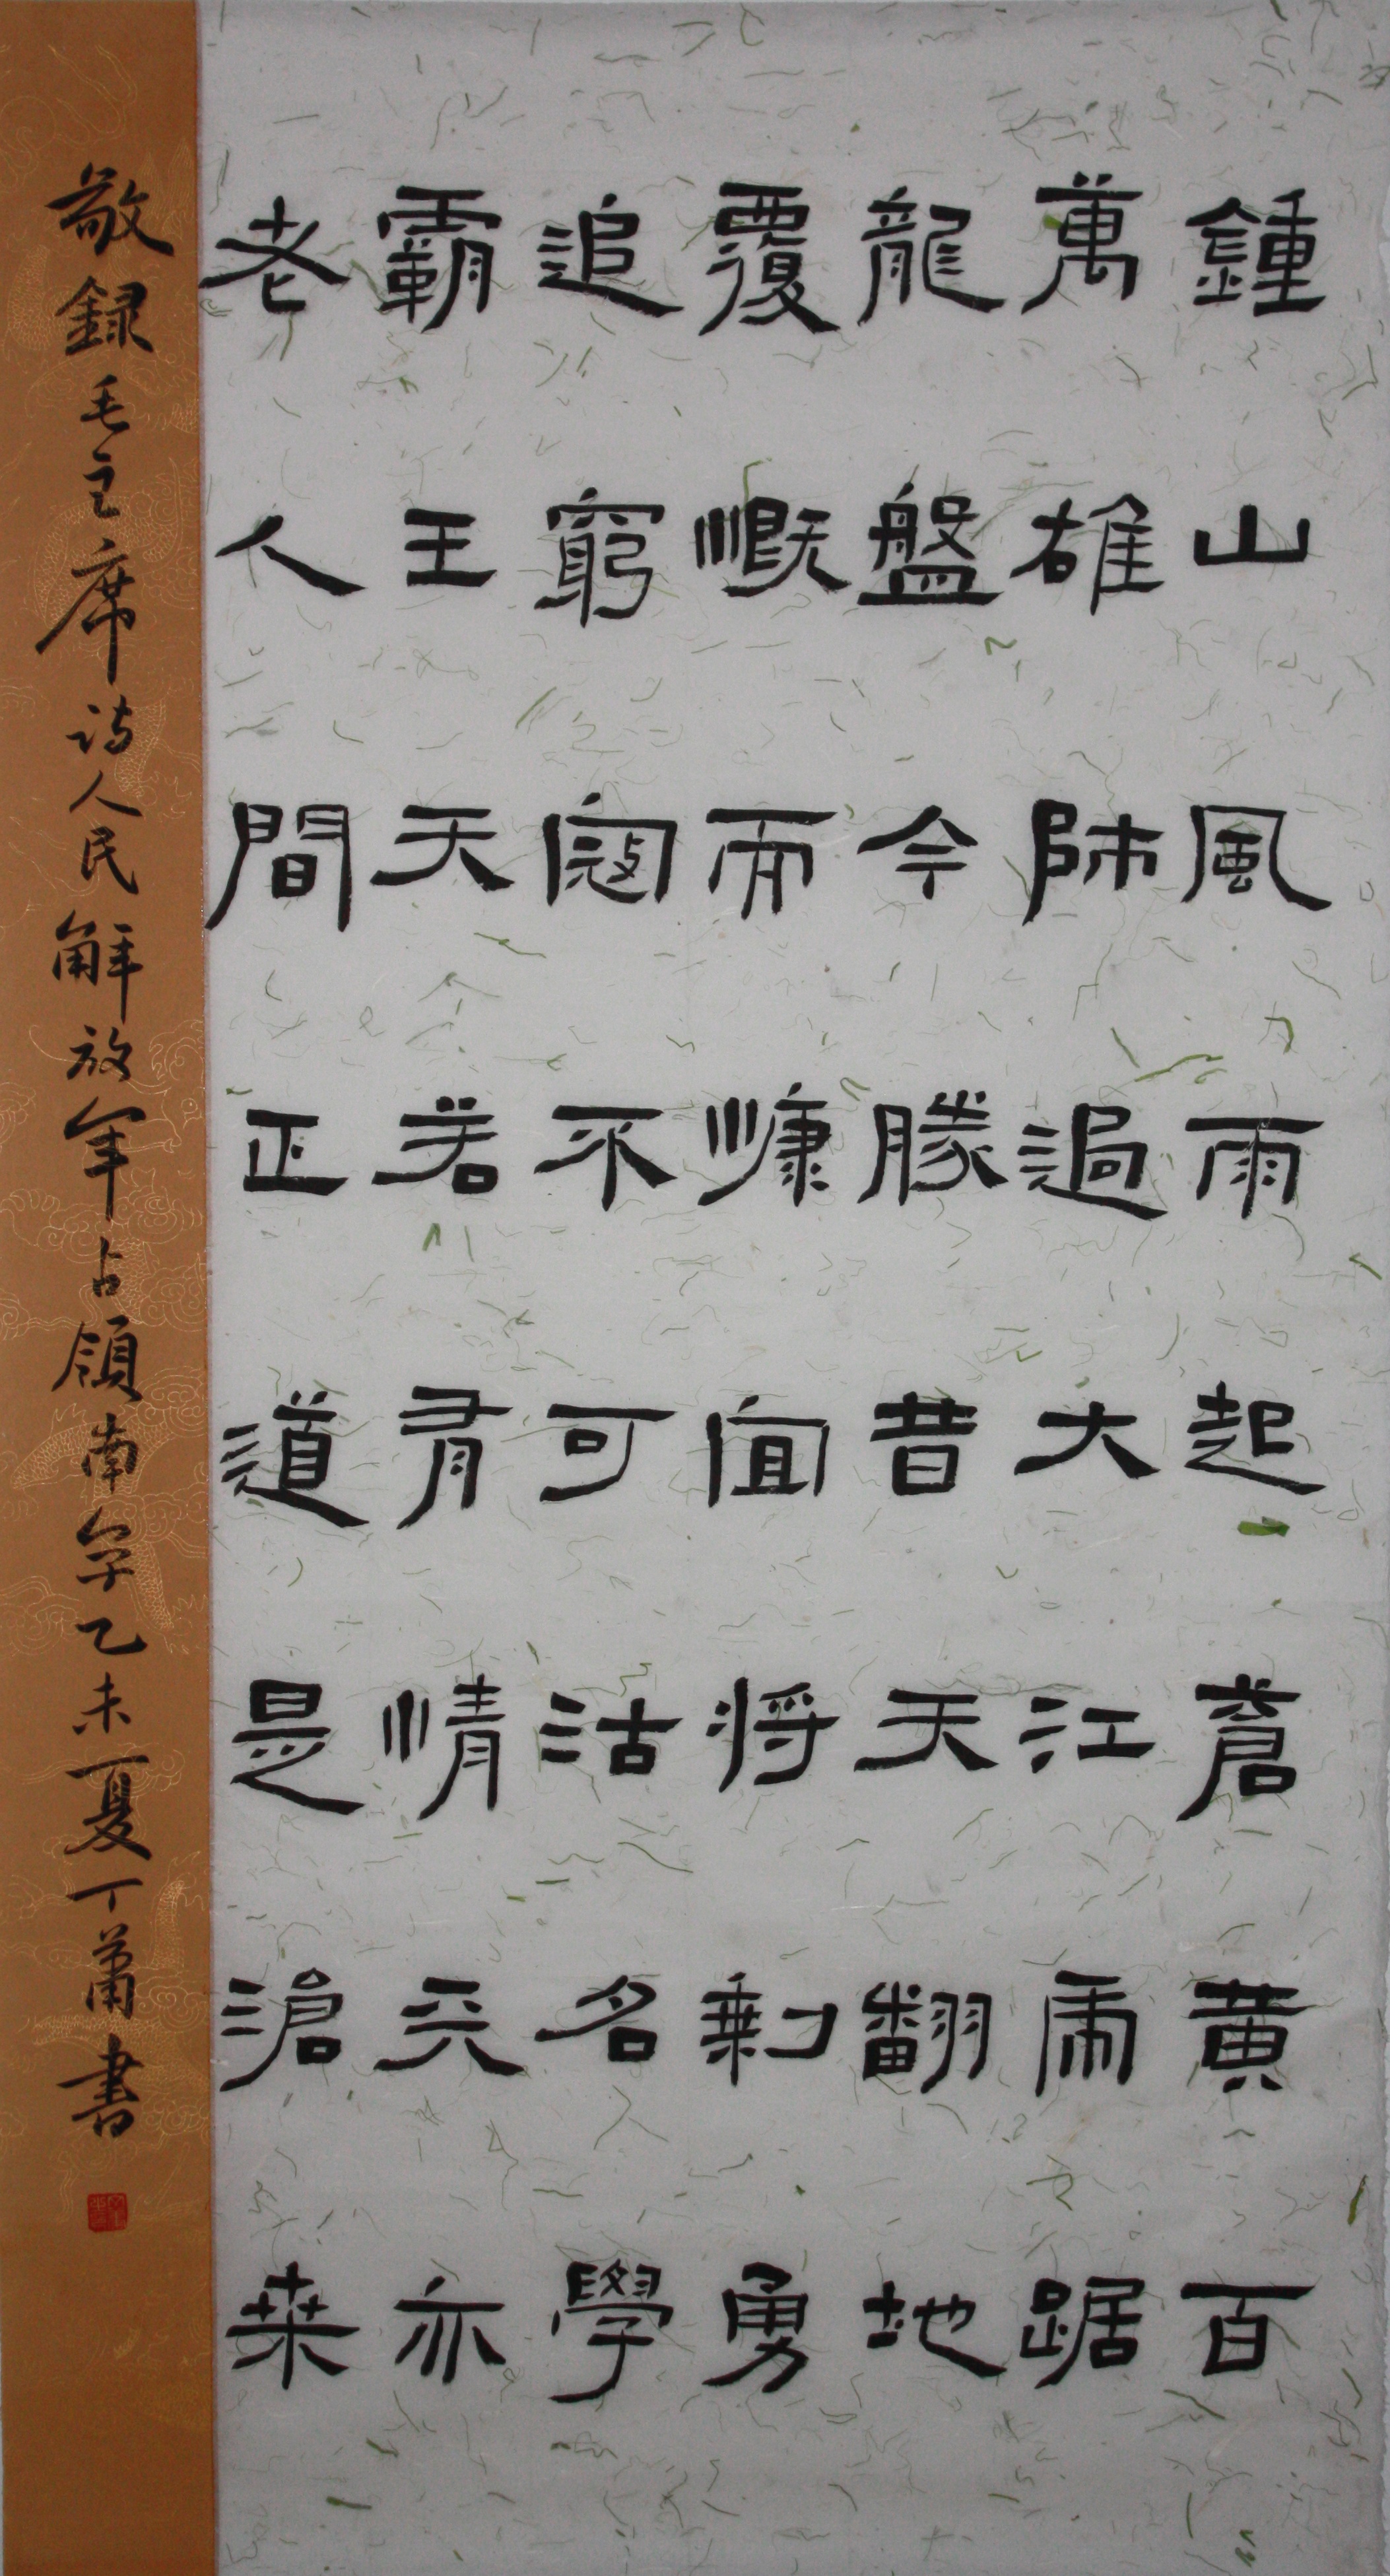 鍾山風雨起蒼黄百
萬雄師過大江虎踞
龍盤今勝昔天翻地
覆慨而慷宜将剩勇
追窮寇不可沽名學
霸王天若有情天亦
老人間正道是滄桒
敬録毛主席诗人民解放军占領南京乙未夏丁萧書